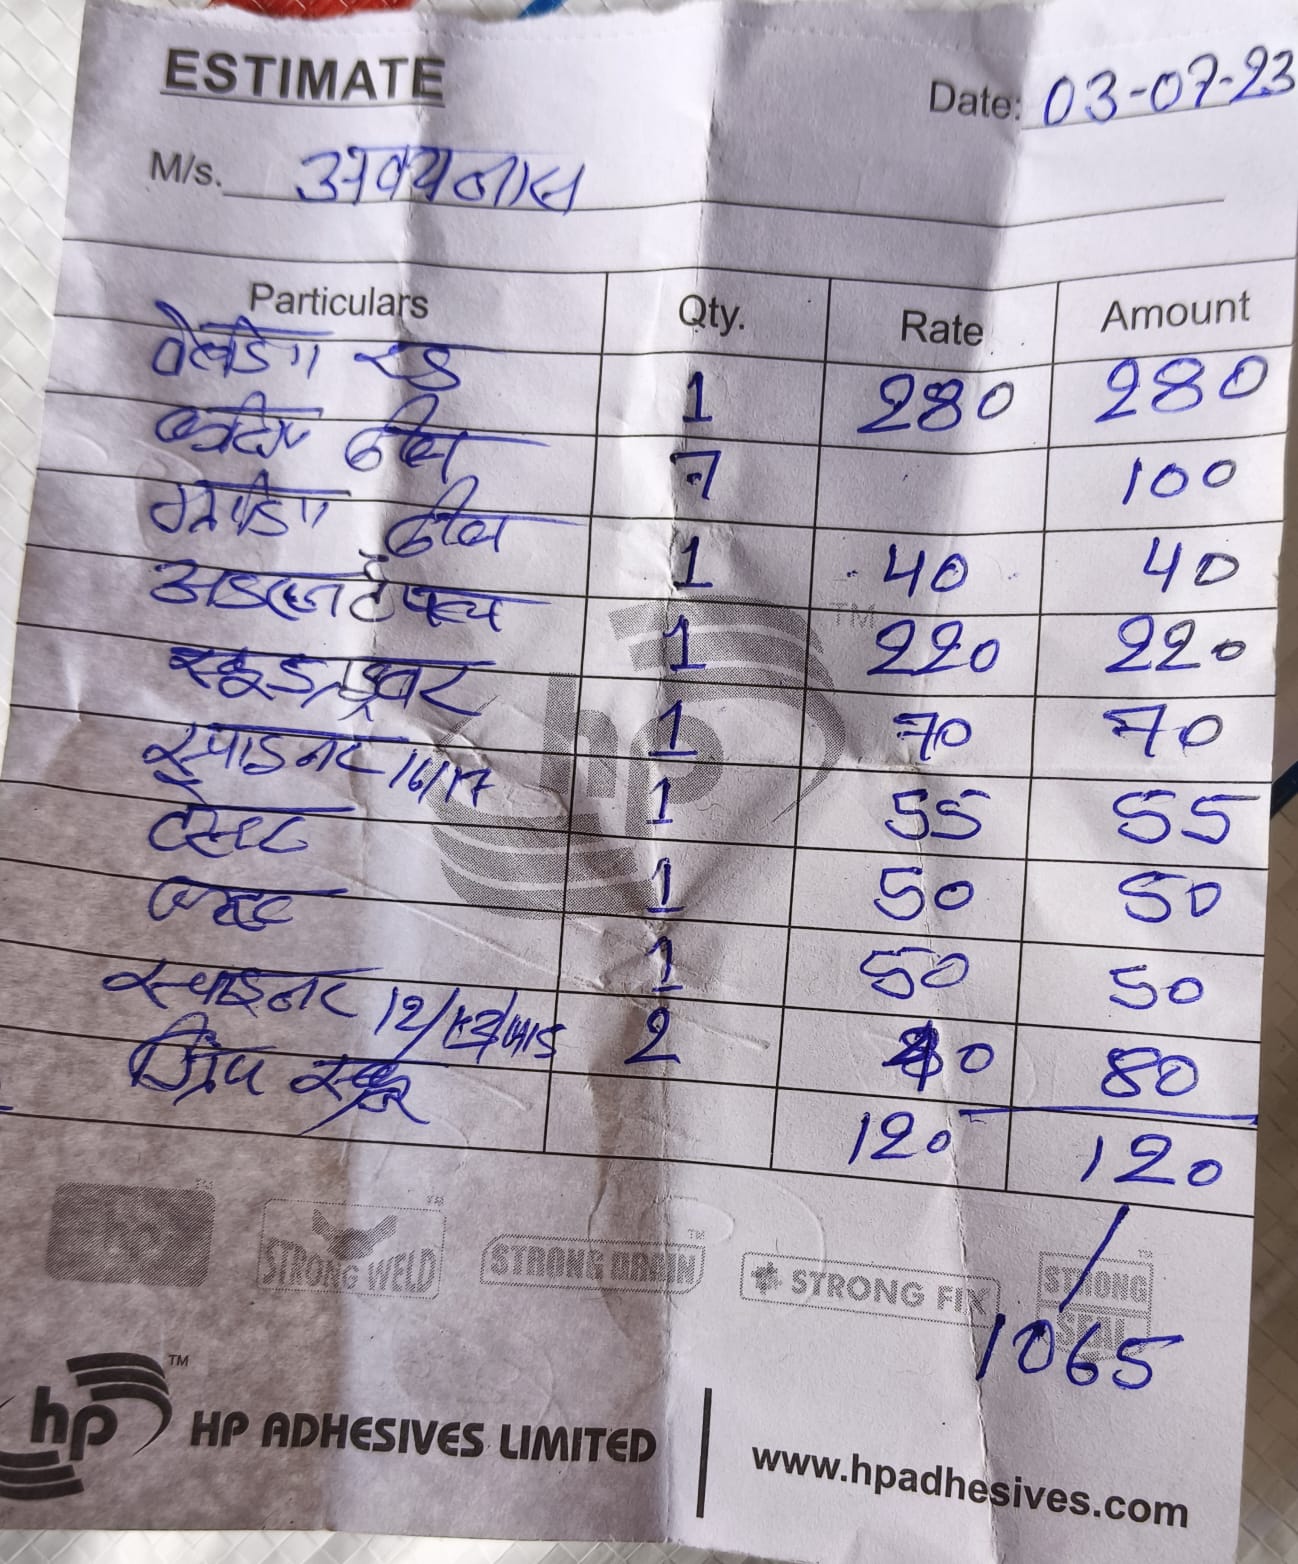 ESTIMATE Date: 03-07-23
M/s.
Particulars Qty. Rate Amount
वेल्डिंग रड 1 280 280
कटिंग व्हील 7 100
ग्रांडिंग व्हील 1 40 40
1 220 220
स्क्रू ड्राइवर 1 70 70
स्पाइनर 16/17 1 55 55
टेस्टर 1 50 50
कटर 1 50 50
स्पाइनर 12/13 2 40 80
120 120
TM
hp
STRONG WELD STRONG BRAIN + STRONG FIX STRONG SEAL
1065
hp TM HP ADHESIVES LIMITED www.hpadhesives.com